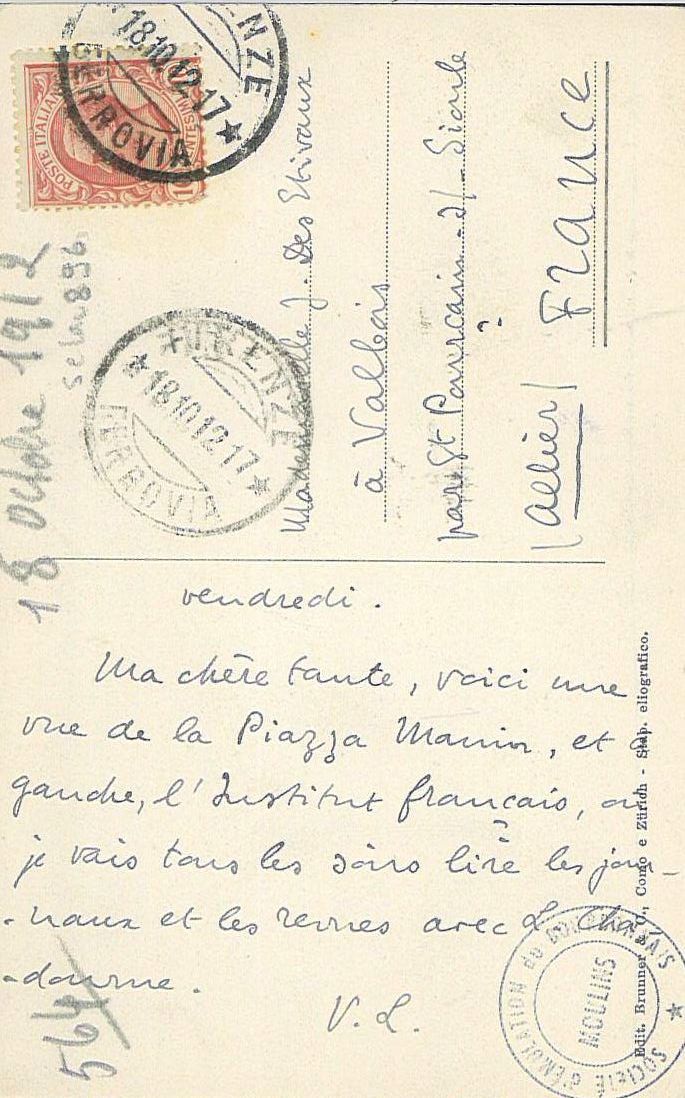 FIRENZE
18.10.12.17
FERROVIA
POSTE ITALIANE
10
18 octobre 1912
896
FIRENZE
18.10.12.17
FERROVIA
Mademoiselle J. Des Etivaux
à Valbois
par St Pourçain-s/-Sioule
(Allier)
FRANCE
vendredi.
Ma chère tante, voici une
vue de la Piazza Manin, et à
gauche, l'Institut français, où
je vais tous les soirs lire les jour-
-naux et les revues avec L. Cha-
-dourne.
V. L.
564
SOCIÉTÉ D'ÉMULATION du BOURBONNAIS
MOULINS
Edit. Brunner & C., Como e Zürich - Stab. eliografico.